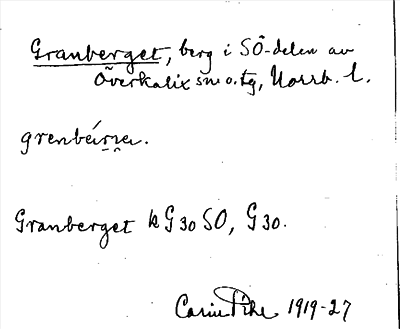 Granberget, berg i SÖ-delen av
Överkalix sn o. tg, Norrb. l.
Granberget k G30 SO, G30.
Carin Pihl 1919-27